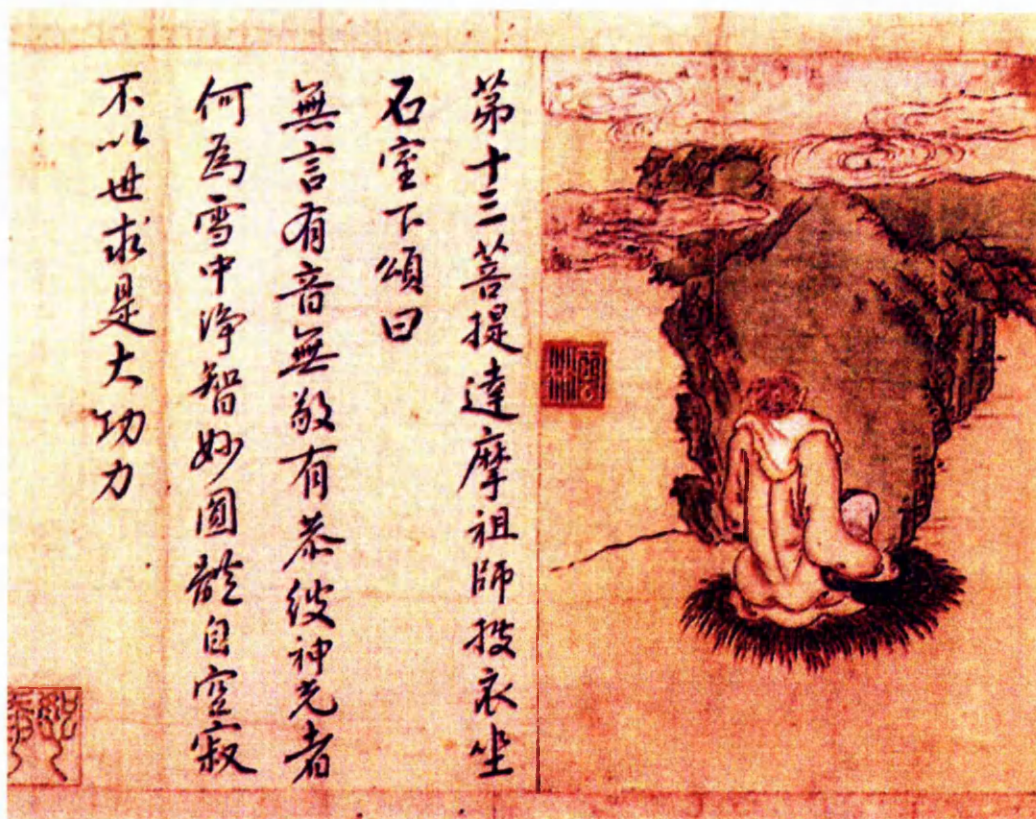 第十三菩提達摩祖師披衣坐
石室下頌曰
無言有音無敬有恭彼神光者
何為雪中淨智妙圓體自空寂
不以世求是大功力